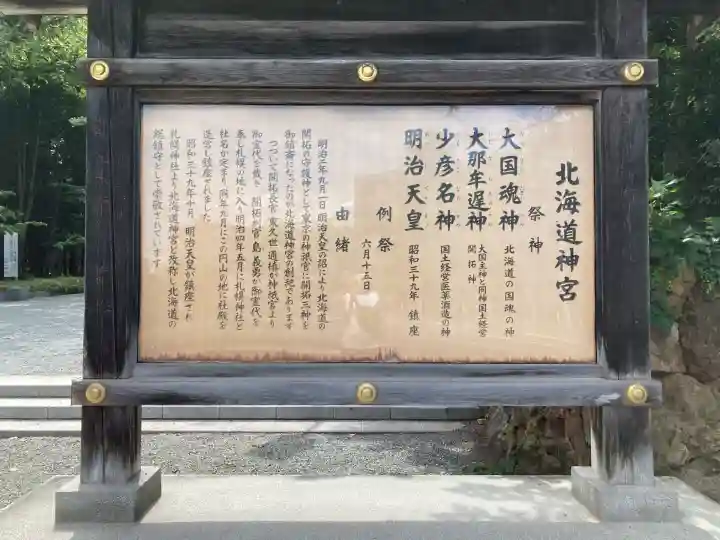 北海道神宮
祭神
大国魂神 北海道の国魂の神
大那牟遅神 大国主神と同神国土経営
開拓神
少彦名神 国土経営医薬酒造の神
明治天皇 昭和三十九年 鎮座
例祭 六月十五日
由緒
明治二年九月一日明治天皇の詔により北海道の
開拓の守護神として東京の神祇官に開拓三神を
御鎮斎になったのが北海道神宮の創祀であります
つづいて開拓長官 東久世通禧が神祇官より
御霊代を戴き 開拓判官 島義勇が御霊代を
奉じ札幌の地に入り明治四年五月に札幌神社と
社名が定まり同年九月にこの円山の地に社殿を
造営し鎮座されました
昭和三十九年十月 明治天皇が鎮座され
札幌神社より北海道神宮と改称し北海道の
総鎮守として崇敬されています